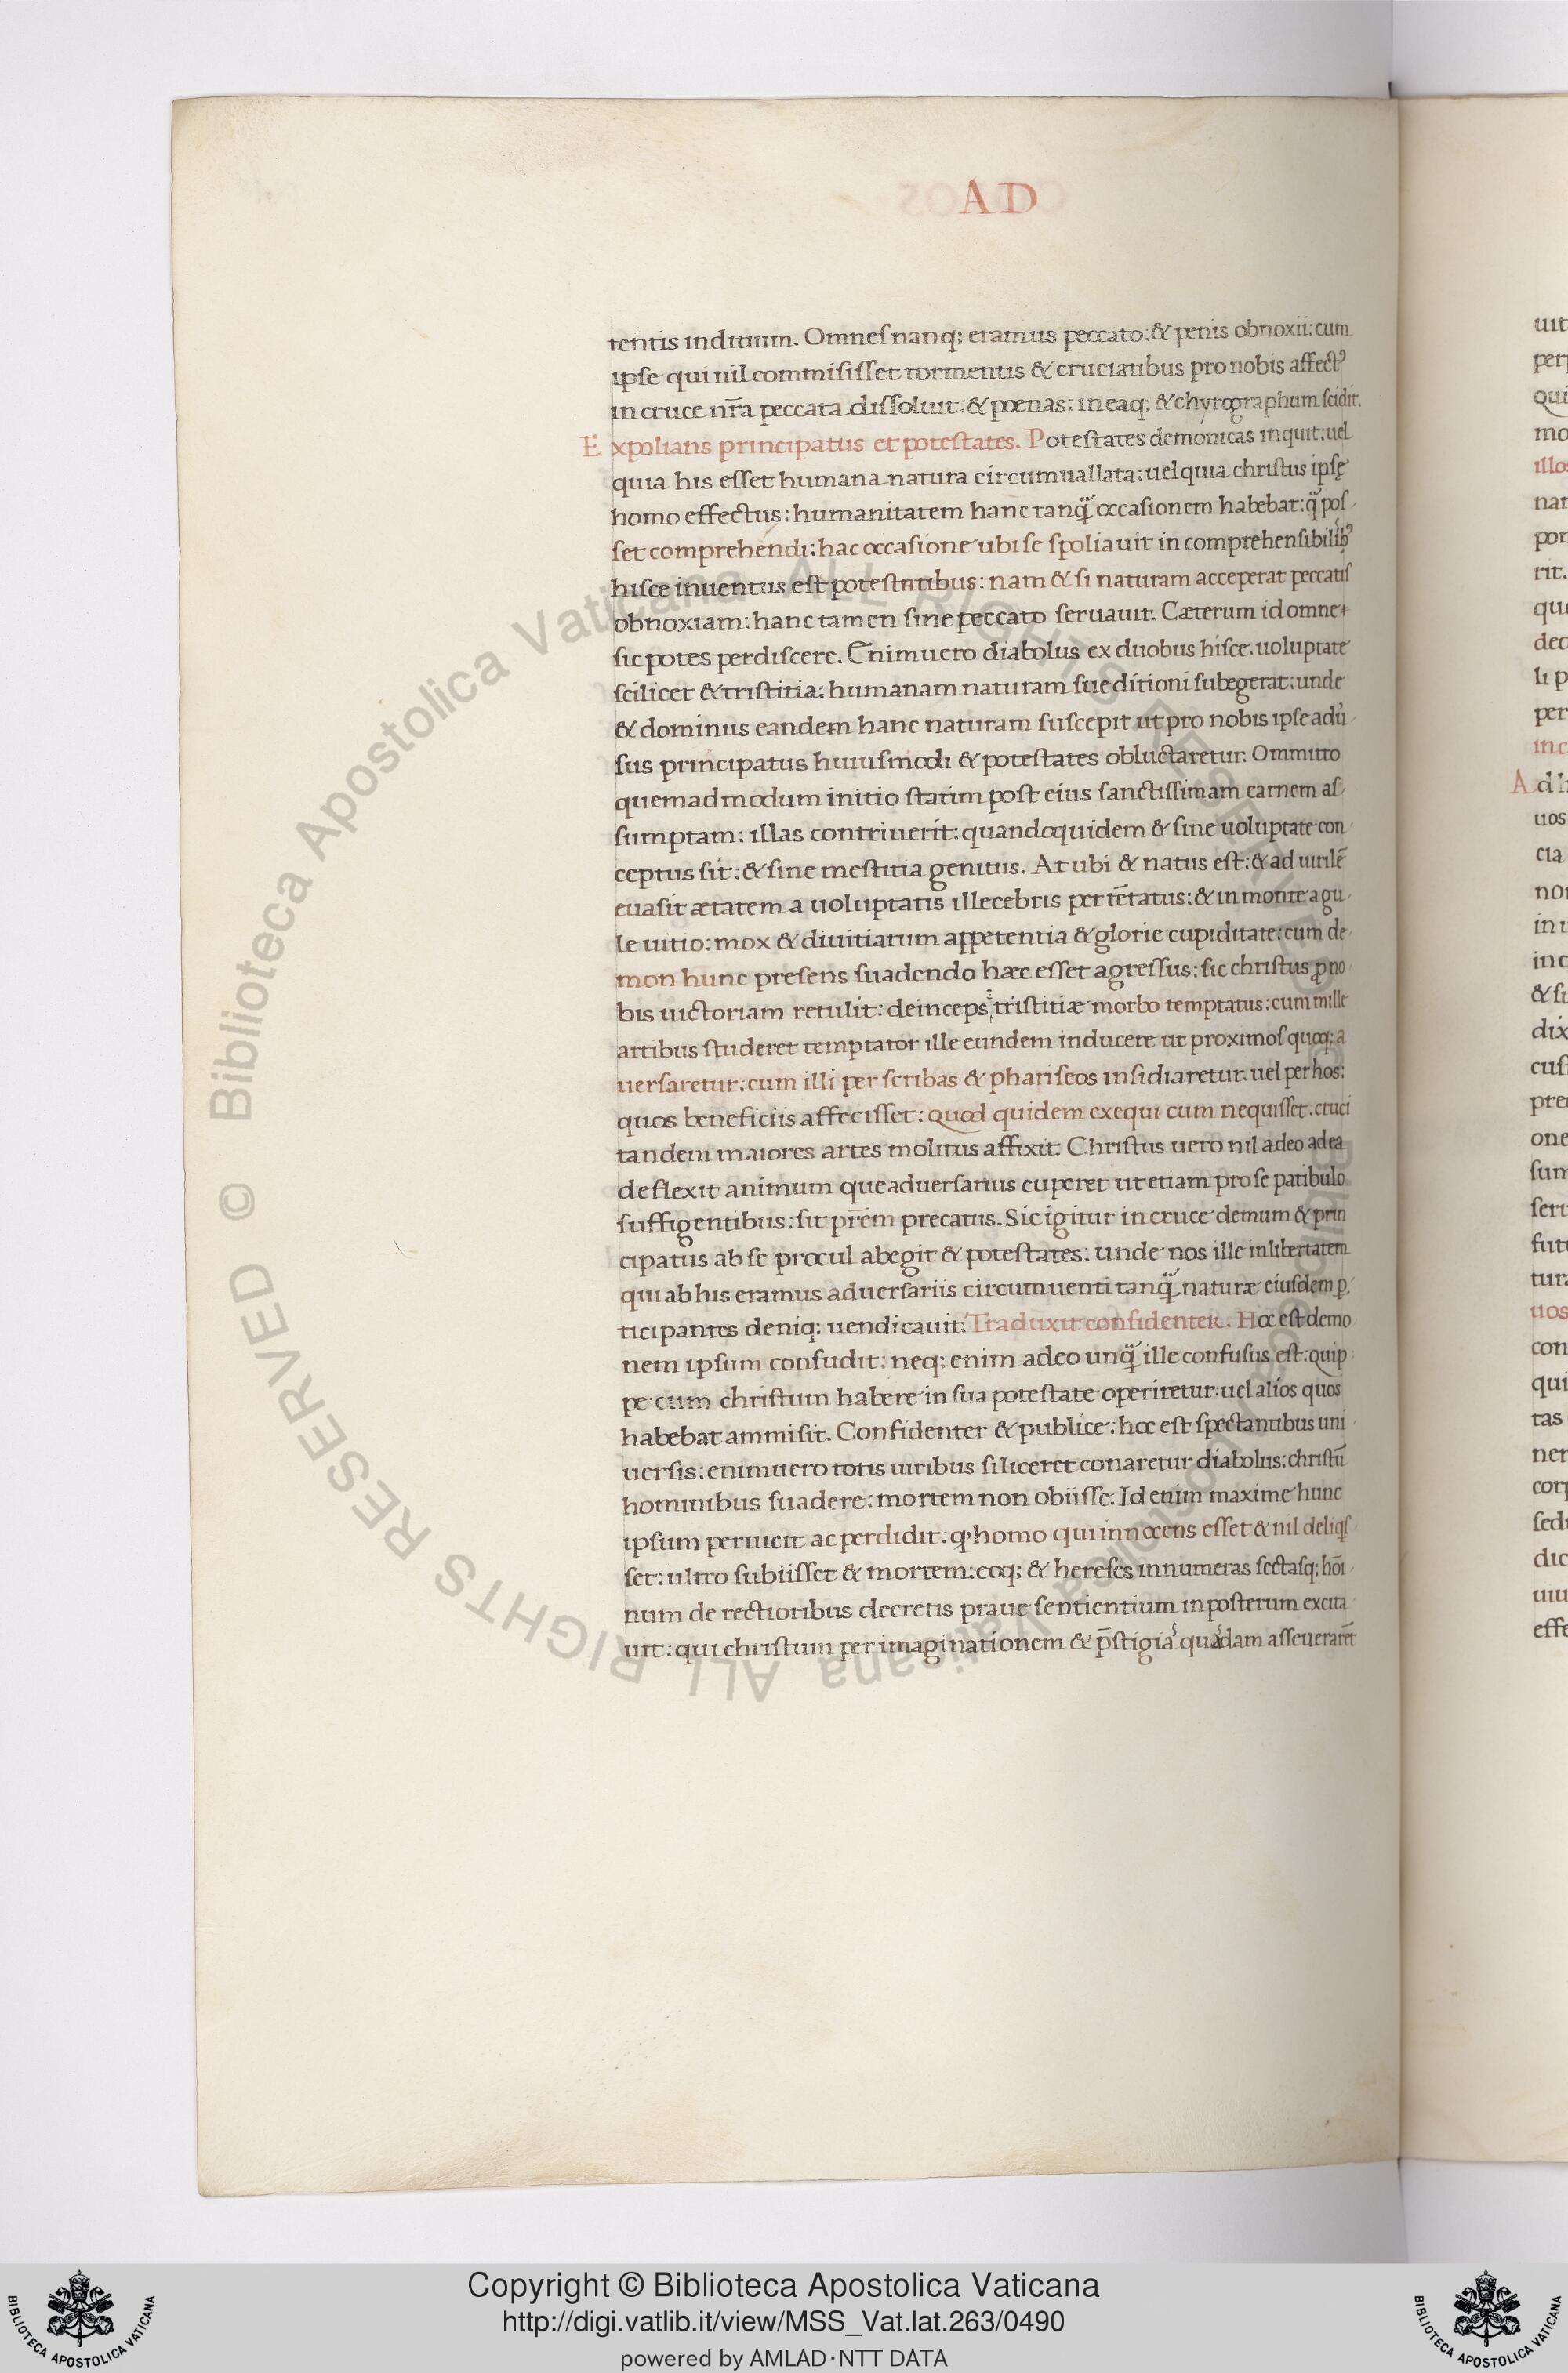 AD
tentis inditium. Omneſ nanq; eramus peccato: & penis obnoxii: cum
ipſe qui nil commiſiſſet tormentis & cruciatibus pro nobis affectꝰ
in cruce nr̄a peccata diſſoluit: & poenas: in eaq; & chyrographum ſcidit.
Expolians principatus et poteſtates. Poteſtates demonicas inquit: uel
quia his eſſet humana natura circumuallata: uel quia chriſtus ipſe
homo effectus: humanitatem hanc tanq̃ occaſionem habebat: q̃ poſ
ſet comprehendi: hac occaſione ubi ſe ſpoliauit incomprehenſibilibꝰ
hiſce inuentus eſt poteſtatibus: nam & ſi naturam acceperat peccatiſ
obnoxiam: hanc tamen ſine peccato ſeruauit. Cæterum id omne
ſic potes perdiſcere. Enimuero diabolus ex duobus hiſce. uoluptate
ſcilicet & triſtitia: humanam naturam ſue ditioni ſubegerat: unde
& dominus eandem hanc naturam ſuſcepit ut pro nobis ipſe adu̾
ſus principatus huiuſmodi & poteſtates obluctaretur. Ommitto
quemadmodum initio ſtatim poſt eius ſanctiſſimam carnem aſ
ſumptam: illas contriuerit: quandoquidem & ſine uoluptate con
ceptus ſit: & ſine meſtitia genitus. At ubi & natus eſt: & ad uirilē
euaſit ætatem a uoluptatis illecebris pertētatus: & in monte a gu
le uitio: mox & diuitiarum appetentia & glorie cupiditate: cum de
mon hunc preſens ſuadendo hæc eſſet agreſſus: ſic chriſtus ꝓ no
bis uictoriam retulit: deinceps triſtitiæ morbo temptatus: cum mille
artibus ſtuderet temptator ille eundem inducere ut proximoſ quoq; a
uerſaretur: cum illi per ſcribas & phariſeos inſidiaretur. uel per hos:
quos beneficiis affeciſſet: quod quidem exequi cum nequiſſet. cruci
tandem maiores artes molitus affixit. Chriſtus uero nil adeo ad ea
deflexit animum que aduerſarius cuperet ut etiam pro ſe patibulo
ſuffigentibus: ſit prēm precatus. Sic igitur in cruce demum & prin
cipatus ab ſe procul abegit & poteſtates. unde nos ille in libertatem
qui ab his eramus aduerſariis circumuenti tanq̃ naturæ eiuſdem ꝑ
ticipantes deniq; uendicauit. Traduxit confidenter. Hoc eſt demo
nem ipſum confudit: neq; enim adeo unq̃ ille confuſus eſt: quip
pe cum chriſtum habere in ſua poteſtate operiretur: uel alios quos
habebat ammiſit. Confidenter & publice: hoc eſt ſpectantibus uni
uerſis: enimuero totis uiribus ſiliceret conaretur diabolus: chriſtū
hominibus ſuadere: mortem non obiiſſe. Id enim maxime hunc
ipſum peruicit ac perdidit: ꝙ homo qui innocens eſſet & nil deliqſ
ſet: ultro ſubiiſſet & mortem: eoq; & hereſes innumeras ſectaſq; hōi
num de rectioribus decretis praue ſentientium in poſterum excita
uit: qui chriſtum per imaginationem & p̄ſtigia quadam aſſeuerarēt